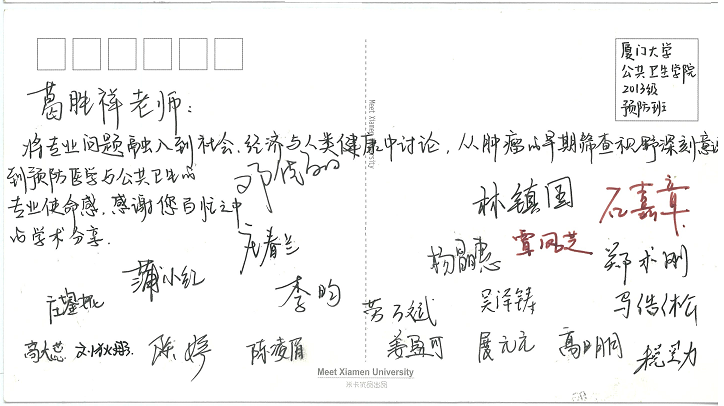 厦门大学
公共卫生学院
2013级
预防班
葛胜祥老师：
将专业问题融入到社会、经济与人类健康中讨论，从肿瘤的早期筛查视野深刻意识
到预防医学与公共卫生的
专业使命感，感谢您百忙之中
的学术分享。
林镇国 石嘉章
庄春兰 杨晶惠 覃凤芝 郑术刚
蒲小红 李昀 劳万斌 吴泽铸 马浩松
陈婷 陈凌眉 姜盈可 展元元 高明明
Meet Xiamen University
Meet Xiamen University